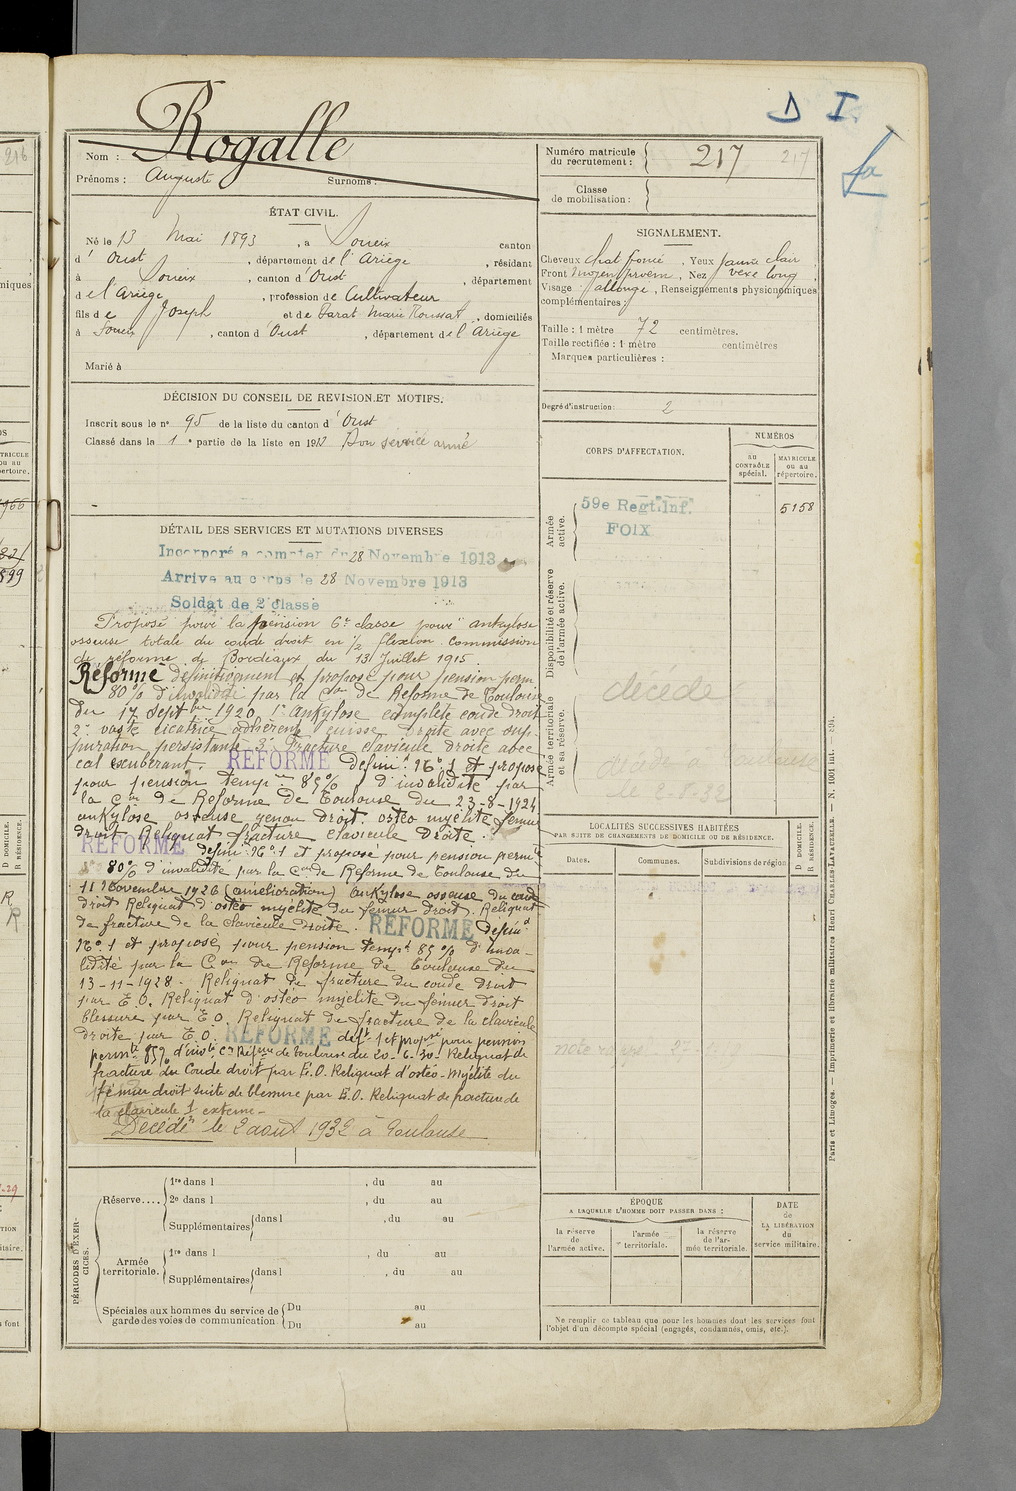 D I
fa
Rogalle
Nom :
Prénoms : Auguste Surnoms :
Numéro matricule du recrutement : 217 217
Classe de mobilisation :
ÉTAT CIVIL.
Né le 13 Mai 1893, à Soueix canton
d' Oust, département de l'Ariège, résidant
à Soueix, canton d'Oust, département
de l'Ariège, profession de Cultivateur
fils de Joseph et de Marie Toussat, domiciliés
à Soueix, canton d'Oust, département de l'Ariège
Marié à
SIGNALEMENT.
Cheveux chat foncé, Yeux jaune clair
Front moyen, Nez vexe long
Visage allongé, Renseignements physionomiques
complémentaires :
Taille : 1 mètre 72 centimètres.
Taille rectifiée : 1 mètre centimètres
Marques particulières :
Degré d'instruction : 2
DÉCISION DU CONSEIL DE REVISION ET MOTIFS.
Inscrit sous le n° 95 de la liste du canton d'Oust
Classé dans le 1e partie de la liste en 1913 Bon service armé
DÉTAIL DES SERVICES ET MUTATIONS DIVERSES
Incorporé à compter du 28 Novembre 1913
Arrivé au corps le 28 Novembre 1913
Soldat de 2e classe
Proposé pour la pension 6e classe pour ankylose
osseuse totale du coude droit en ½ flexion Commission
de réforme de Bordeaux du 13 Juillet 1915.
Réformé définitivement et proposé pour pension perm
80% d'invalidité par la Con de Réforme de Toulouse
du 17 Septbre 1920 1° ankylose complète coude droit
2° vaste cicatrice adhérente cuisse droite avec sup-
puration persistante 3° Fracture clavicule droite avec
cal exubérant. RÉFORMÉ définit N° 1 et proposé
pour pension temp 85% d'invalidité par
la Con de Réforme de Toulouse du 23-8-1924
ankylose osseuse genou droit. ostéo myélite fémur
droit Reliquat fracture clavicule droite.
RÉFORMÉ défini N° 1 et proposé pour pension perm
80% d'invalidité par la Con de Réforme de Toulouse du
11 Novembre 1926 (amélioration) ankylose osseuse du coude
droit Reliquat d'ostéo myélite du fémur droit. Reliquat
de fracture de la clavicule droite. RÉFORMÉ définit
N° 1 et proposé pour pension tempre 85% d'inva-
lidité par la Con de Réforme de Toulouse du
13-11-1928. Reliquat de fracture du coude droit
par E.O. Reliquat d'ostéo myélite du fémur droit
blessure par E.O Reliquat de fracture de la clavicule
droite par E.O. RÉFORMÉ deft 1 et proposé pour pension
permte 85% d'invté Con Réforme de Toulouse du 20-6-30- Reliquat de
fracture du Coude droit par E.O. Reliquat d'ostéo-Myélite du
fémur droit suite de blessure par E.O. Reliquat de fracture de
la clavicule 1 externe-
Décédé le 2 août 1932 à Toulouse
CORPS D'AFFECTATION.
NUMÉROS
au CONTRÔLE spécial.
MATRICULE ou au répertoire.
Armée active.
59e Regt. Inf.
FOIX
5158
Disponibilité et réserve de l'armée active.
décédé
Armée territoriale et sa réserve.
décédé à Toulouse
le 2-8-32
LOCALITÉS SUCCESSIVES HABITÉES
PAR SUITE DE CHANGEMENTS DE DOMICILE OU DE RÉSIDENCE.
Dates. Communes. Subdivisions de région
D DOMICILE.
R RÉSIDENCE.
PÉRIODES D'EXERCICES.
Réserve.... 1re dans l , du au
2e dans l , du au
Supplémentaires dans l , du au
Armée territoriale. 1re dans l , du au
Supplémentaires dans l , du au
Spéciales aux hommes du service de garde des voies de communication Du au
Du au
ÉPOQUE
A LAQUELLE L'HOMME DOIT PASSER DANS :
la réserve de l'armée active.
l'armée territoriale.
la réserve de l'armée territoriale.
DATE de LA LIBÉRATION du service militaire.
Ne remplir ce tableau que pour les hommes dont les services font
l'objet d'un décompte spécial (engagés, condamnés, omis, etc.).
Paris et Limoges. — Imprimerie et librairie militaires Henri CHARLES-LAVAUZELLE.